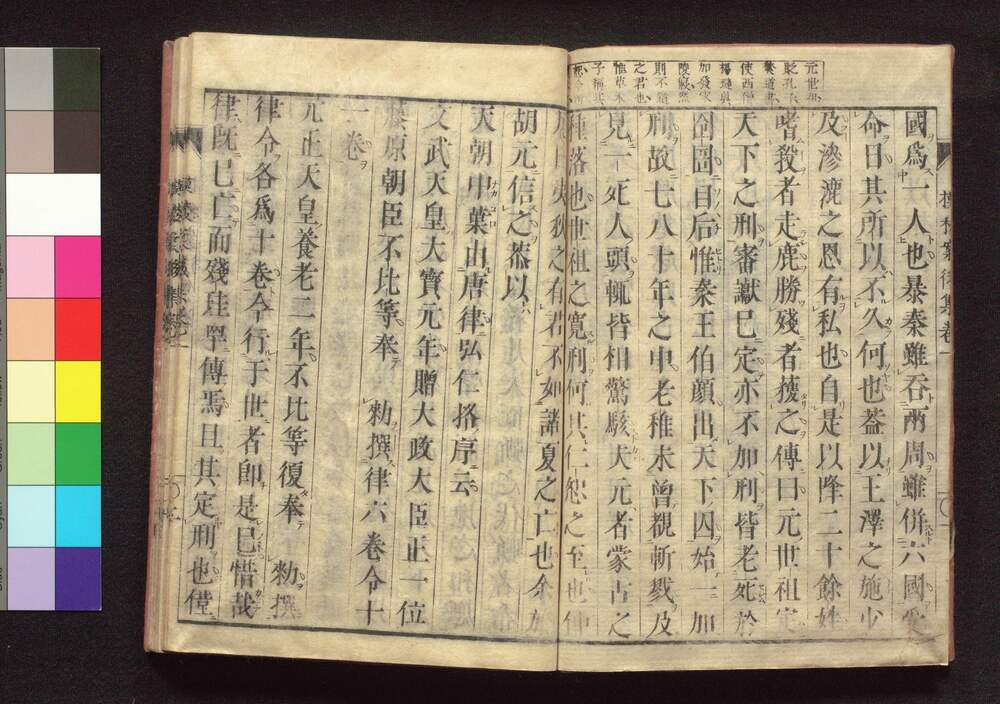 國爲一人也暴秦雖吞兩周雖併六國受
命日其所以不久何也蓋以王澤之施少
及滲漉之恩有私也自是以降二十餘姓
嗜殺者走鹿勝殘者獲之傳曰元世祖定
天下之刑審讞已定亦不加刑皆老死於
囹圄自后惟秦王伯顏出天下囚始一加
刑故七八十年之中老稚未曾覩斬戮及
見一死人頭輒皆相驚駭夫元者蒙古之
種落也世祖之寬刑何其仁恕之至也仲
尼曰夷狄之有君不如諸夏之亡也余於
胡元信之蓋以
天朝中葉由唐律弘仁格序云
文武天皇大寶元年贈大政大臣正一位
藤原朝臣不比等奉 勅撰律六卷令十
一卷
元正天皇養老二年不比等復奉 勅撰
律令各爲十卷今行于世者卽是已惜哉
律既已亡而殘珪單傳焉且其定刑也儻
元世祖
使西僧
楊璉眞
加發宋
陵寢
則不道
之君也
惟草木
子稱其